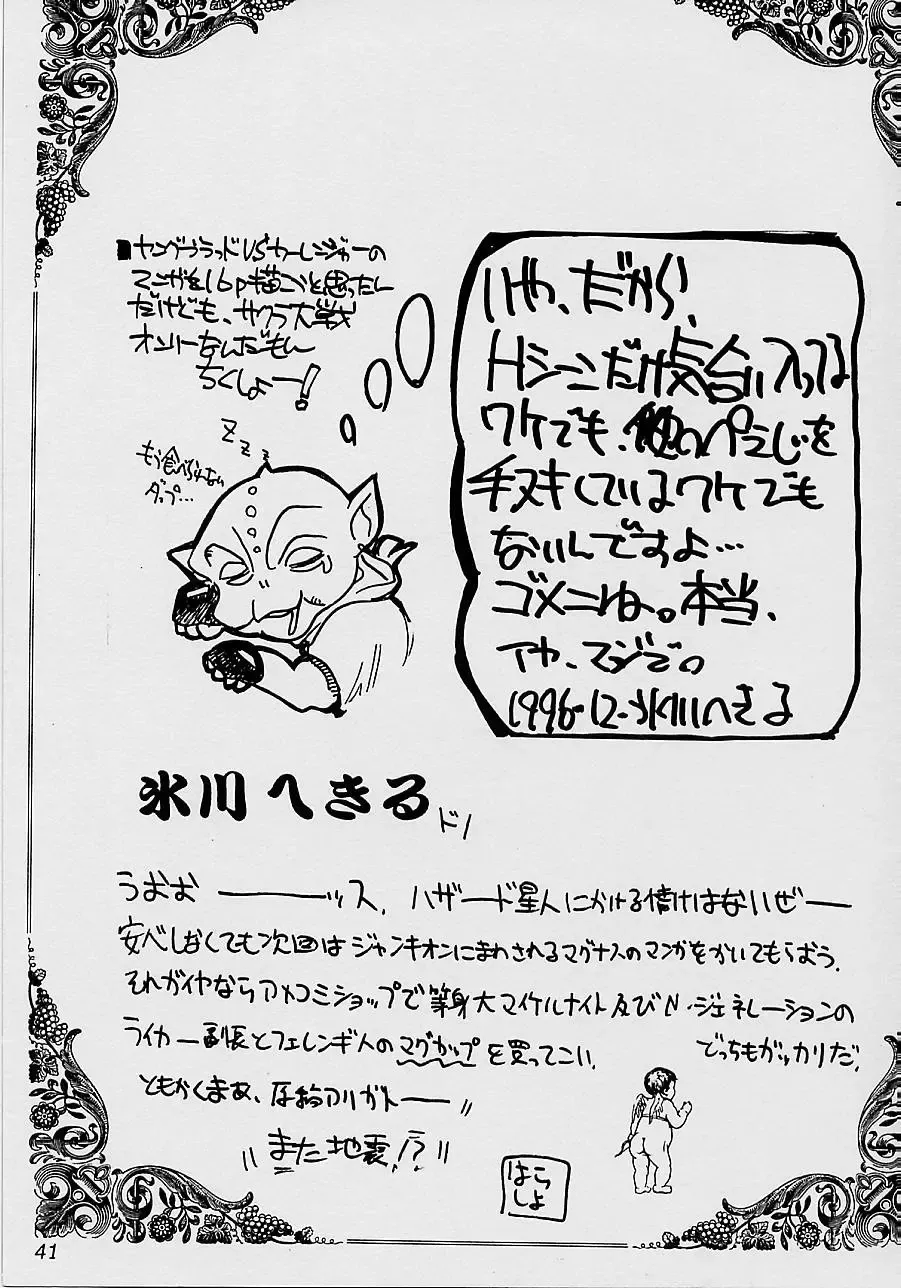 ■ヤングブラッドVSカーレンジャーの
マンガを16p描こうと思ったん
だけども、サクラ大戦
オンリーなんだもん
ちくしょー!
いや、だから、
Hシーンだけ気合い入ってる
ワケでも、他のページを
手ヌキしているワケでも
ないんですよ…
ゴメンね。本当、
イヤ、マジで。
1996-12-氷川へきる
ZZZZ
もう食べられない
ダップ…
氷川へきる
ドノ
うおお────ッス、ハザード星人にかける情けはないぜー
安べしなくても次回はジャンキオンにまわされるマグナスのマンガをかいてもらおう.
それがイヤならアメコミショップで等身大マイケルナイト及びN・ジェネレーションの
ライカー副長とフェレンギ人のマグカップを買ってこい. でっちもガッカリだ.
ともかくまぁ、原稿アリガトー──〃
〃また地震!?〃
はら
しよ
41